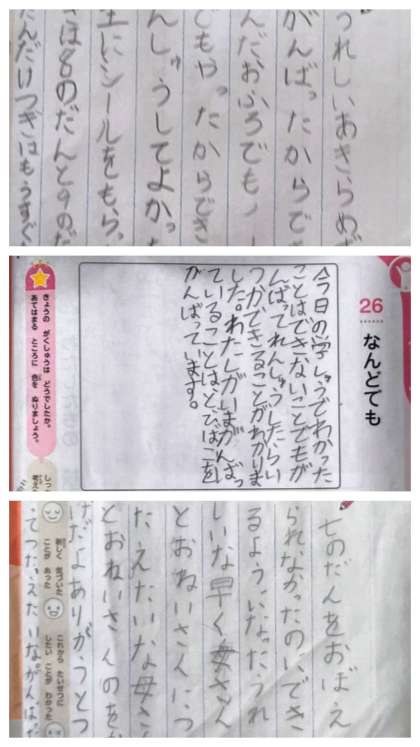 うれしいあきらめず
がんばったからで
んだおふろでもノ
でもやったからでき
んしゅうしてよかっ
生にシールをもらっ
さは名のだんとのだ
だんだけつぎはもうすぐ
26
なんどても
今日の学しゅうでわかった
ことはできないことでもが
んばってれんしゅうしたらい
つかできることがわかりま
した。わたしがいまがんばっ
ていることはとびばこを
がんばっています。
きょうの がくしゅうは どうでしたか。
あてはまる ところに 色を ぬりましょう。
七のだんをおぼえ
られなかったのにでき
るようになったうれ
しいな早く母さん
とおねいさんにつ
たえたいな母さ
とおねいさんのをか
げだよありがうとつ
てつたえたいながんば
新しく 気づいた
ことが あった
これから たいせつに
したい ことが わかった